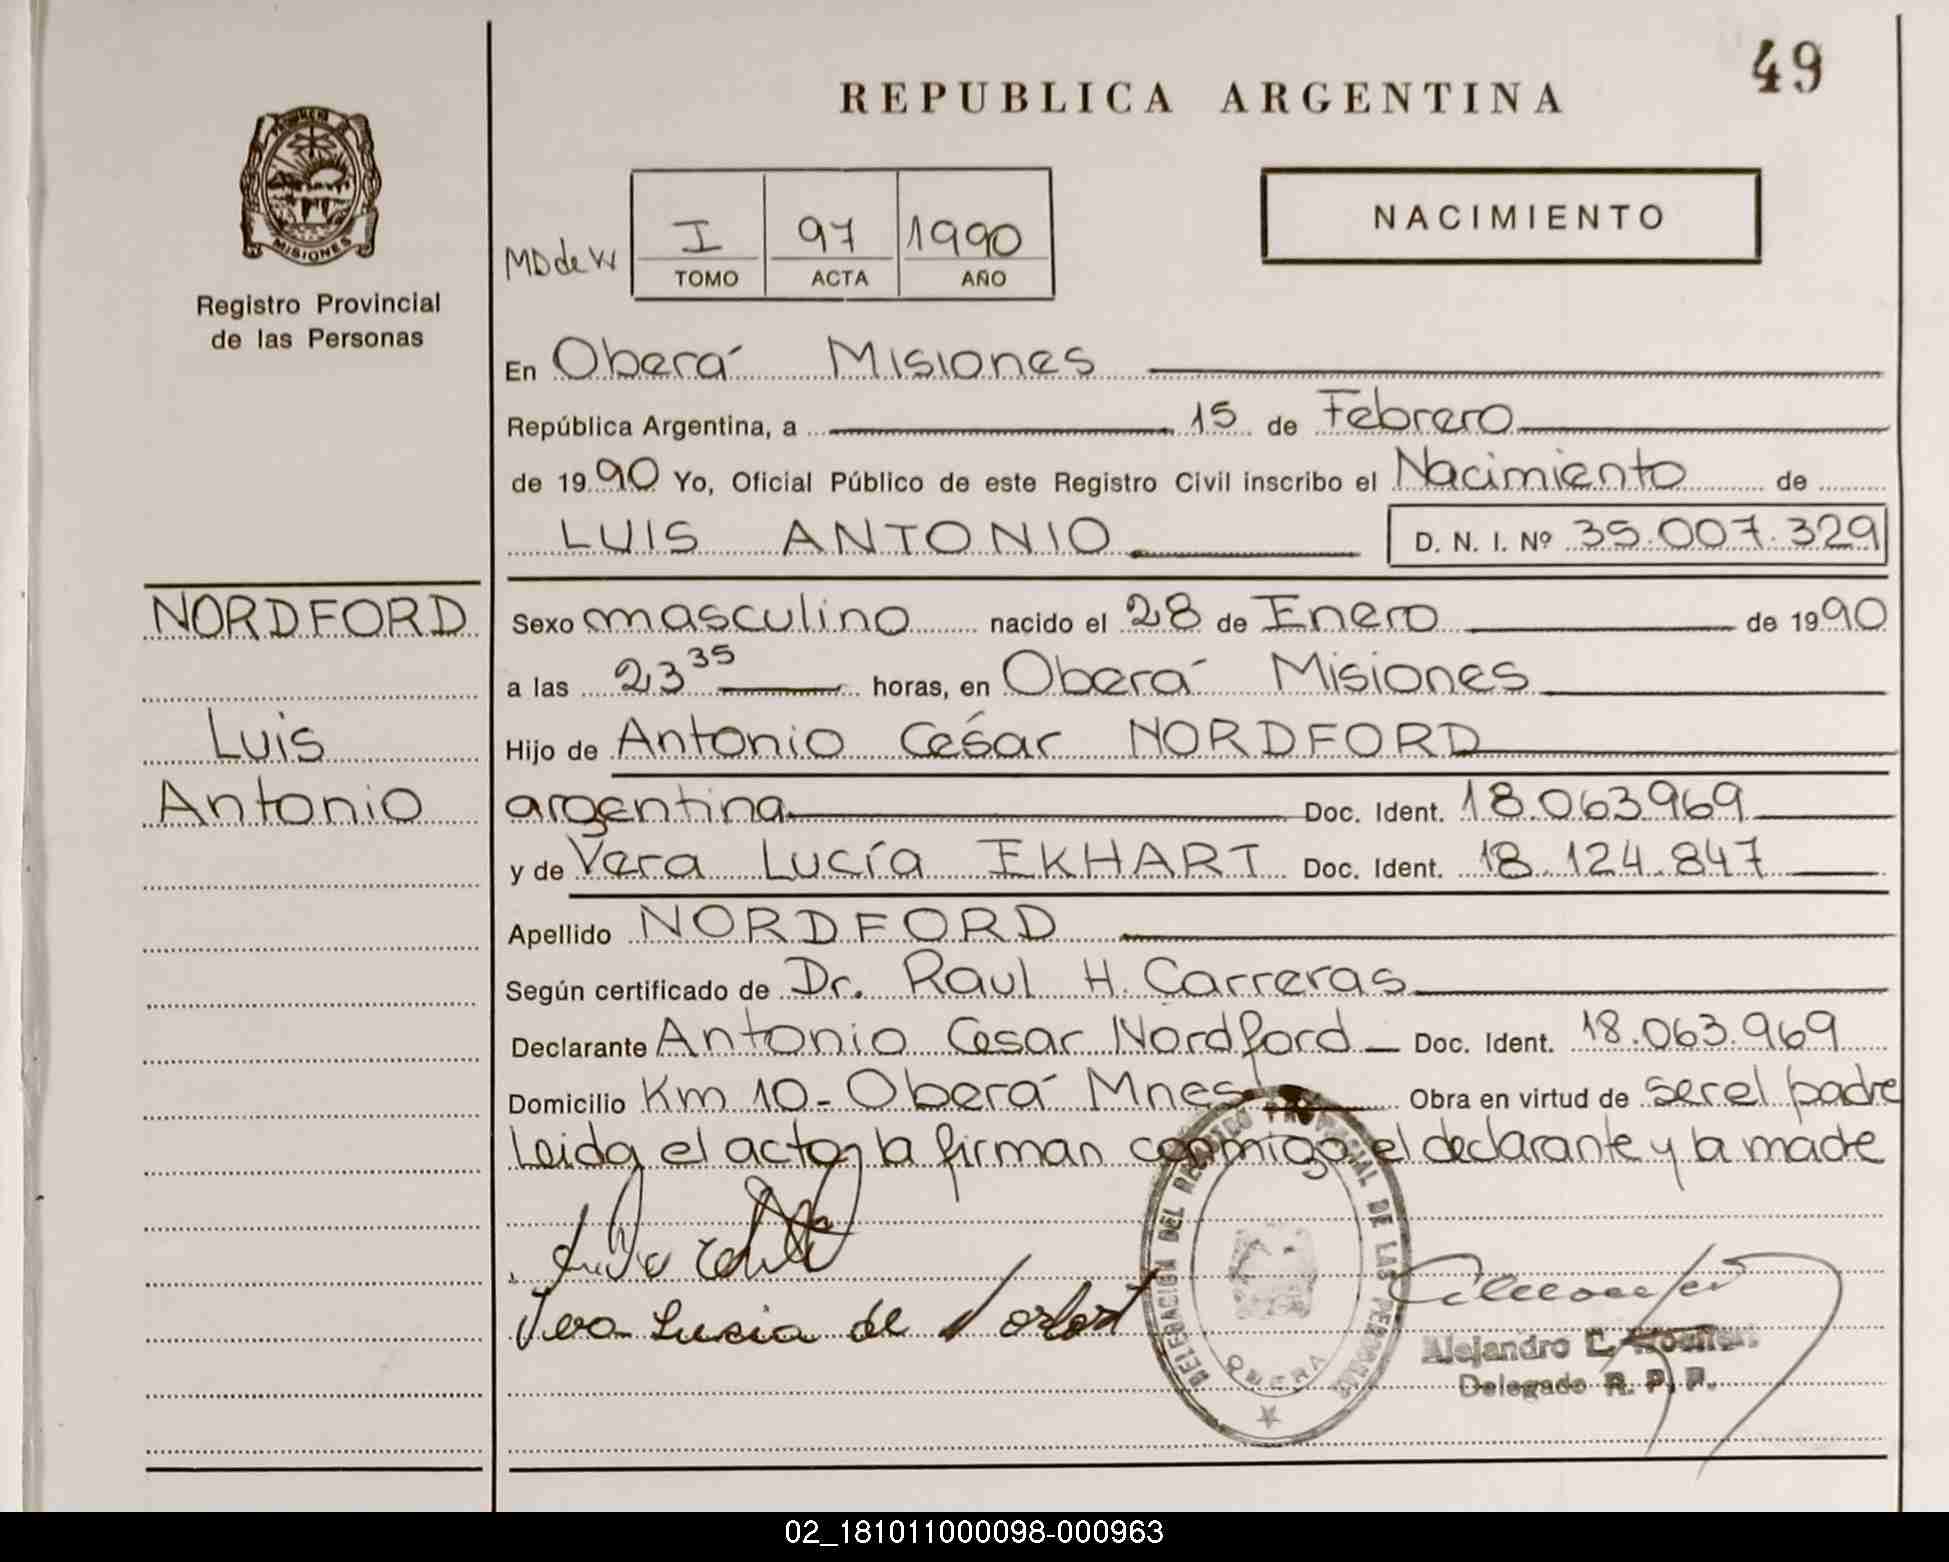 49
REPUBLICA ARGENTINA
PROVINCIA DE
MISIONES
Registro Provincial
de las Personas
NACIMIENTO
MD de W I 97 1990
TOMO ACTA AÑO
En Oberá Misiones
República Argentina, a 15 de Febrero
de 1990 Yo, Oficial Público de este Registro Civil inscribo el Nacimiento de
LUIS ANTONIO D. N. I. Nº 35.007.329
NORDFORD
Luis
Antonio
Sexo masculino nacido el 28 de Enero de 1990
a las 23 35 horas, en Oberá Misiones
Hijo de Antonio César NORDFORD
argentina Doc. Ident. 18.063969
y de Vera Lucía EKHART Doc. Ident. 18.124.847
Apellido NORDFORD
Según certificado de Dr. Raul H. Carreras
Declarante Antonio Cesar Nordford Doc. Ident. 18.063.969
Domicilio Km 10 - Oberá Mnes Obra en virtud de ser el padre
Leida el acta, la firman conmigo el declarante y la madre
Vera Lucia de
DELEGACION DEL REGISTRO PROVINCIAL DE LAS PERSONAS
OBERA
Alejandro C.
Delegado R. P. P.
02_181011000098-000963